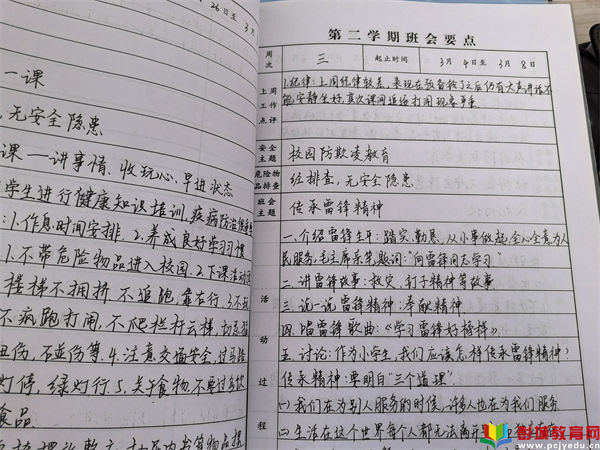 26日至 3月
一课
无安全隐患
课一讲事情、收玩心、早进状态
学生进行健康知识培训,疾病防治
:1.作息时间安排.2.养成良好学习习惯
1.不带危险物品进入校园.2.下课
楼梯不拥挤,不追跑,靠右行
不疯跑打闹,不爬栏杆云梯
丑伤,石並伤等.4.注意交通安全,过马路
灯停,绿灯行.5.关于食物,不要
食品
第二学期班会要点
周次 三 起止时间 3月4日至3月8日
上周工作点评 1.纪律:上周纪律较差,表现在预备铃了之后仍有大声讲话不
能安静坐好,其次课间追逐打闹现象严重.
安全主题 校园防欺凌教育
危险物品排查 经排查,无安全隐患
班会主题 传承雷锋精神
活动过程
一.介绍雷锋生平:踏实勤恳,从小事做起,全心全意为人
民服务,毛主席亲笔题词:"向雷锋同志学习"
二.讲雷锋故事:救灾、钉子精神等故事
三.说一说雷锋精神:奉献精神
四.唱雷锋歌曲:《学习雷锋好榜样》
五.讨论:作为小学生,我们应该怎样传承雷锋精神?
传承精神:要明白"三个道理"
(一)我们在为别人服务的时候,许多人也在为我们服务
(二)生活在这个世界每个人都无法离开
彭城教育网
www.pcjyedu.cn